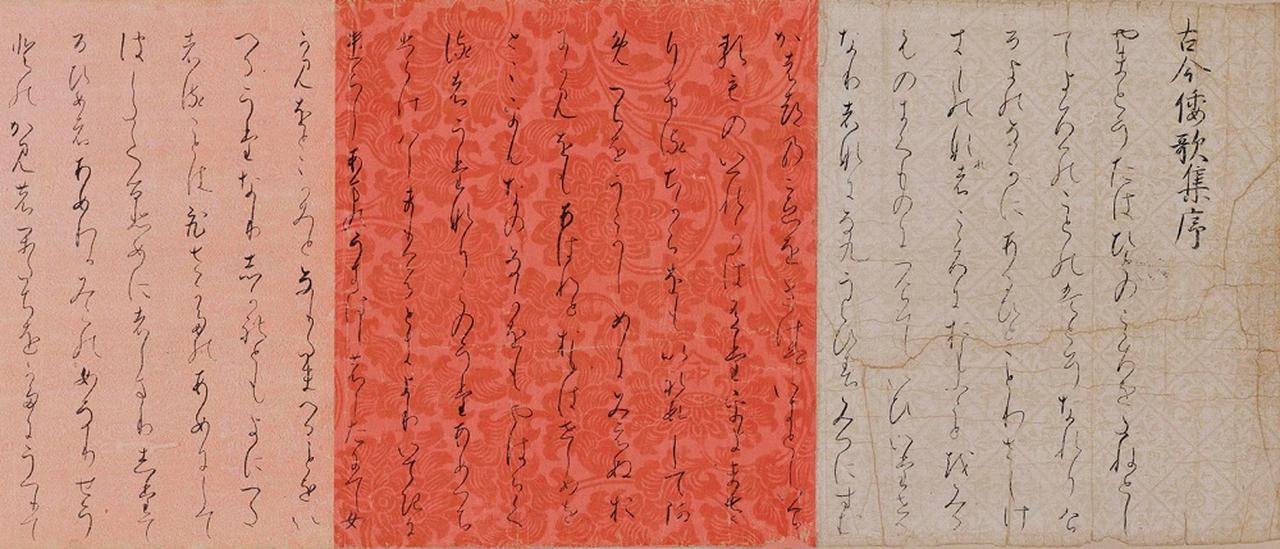 古今倭歌集序
やまとうたはひとのこゝろをたねとし
てよろつのことのはとそなれりけ
るよのなかにあるひとことわさしけ
きものなれはこゝろにおもふことをみる
ものきくものにつけていひいたせる
なりはなになくうくひすみつにすむ
かはつのこゑをきけはいきとしいけ
るものいつれかはうたをよまさ
りけるちからをもいれすしてあ
めつちをうこかしめにみえぬお
にかみをもあはれとおもはせを
とこをむなのなかをもやはらく
るはうたなりこのうたあめつち
いてきに
したにて女
かみをとこかみとなりたまへることをい
へるうたなりしかれともよにつた
はることは のあめにして
はしたてるひめにはしまりしたて
るひめとはあめわかみこのめなりせう
とのかみのかたちを